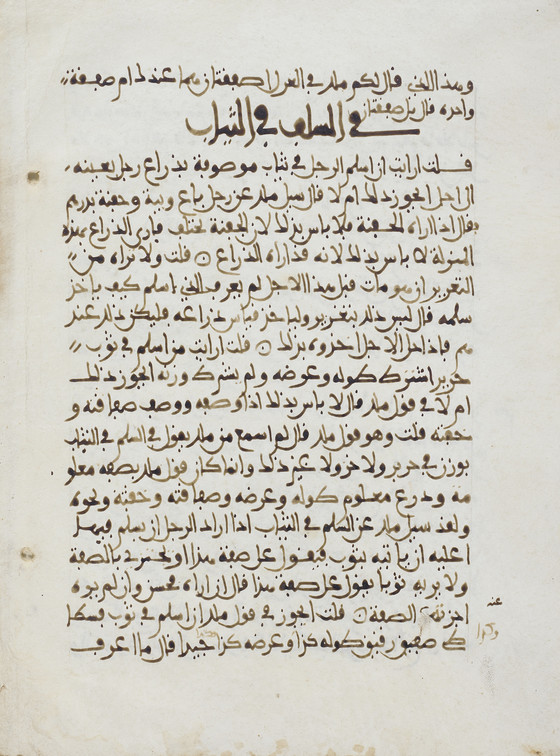 وهذا الذي قال لكم ملك في العدل اصفقتان هما عندك ام صفقة
واحدة قال بل صفقتان
في السلف في الثياب
قلت ارايت ان اسلم الرجل في ثياب موصوفة بذراع رجل بعينه
الى اجل ايجوز ذلك ام لا قال سيل ملك عن رجل باع ويبة وحفنة بدرهم
فقال اذا اراه الحفنة فلا باس بذلك لان الحفنة تختلف فارى الذراع بهذه
المنزلة لا باس بذلك لانه قد اراه الذراع قلت ولا تراه من
التغرير ان هو مات قبل هذا الاجل لم يعرف الذي اسلم كيف ياخذ
سلمه قال ليس ذلك بتغرير ولياخذ قياس ذراعه فليكن ذلك عند
هم فاذا حل الاجل اخذوه بذلك قلت ارايت من اسلم في ثوب
حرير اشترط طوله وعرضه ولم يشترط وزنه ايجوز ذلك
ام لا في قول ملك قال لا باس بذلك اذا وصفه ووصف صفاقته و
خفته قلت وهو قول ملك قال لم اسمع من ملك يقول في السلم في الثياب
بوزن في حرير ولا خز ولا غير ذلك وانما كان قول ملك بصفة معلو
مة وذرع معلوم طوله وعرضه وصفاقته وخفته ونحوه
ولقد سيل ملك عن السلم في الثياب اذا اراد الرجل ان يسلم فيها
اعليه ان ياتيه بثوب فيقول على صفة هذا او يجتزي بالصفة
ولا يريه ثوبا يقول على صفة هذا قال ان اراه فحسن وان لم يره
اجزته الصفة قلت ايجوز في قول ملك ان اسلم في ثوب فسطا
عنه
طي صفيق رقيق طوله كذا وعرضه كذا جيدا قال ما اعرف